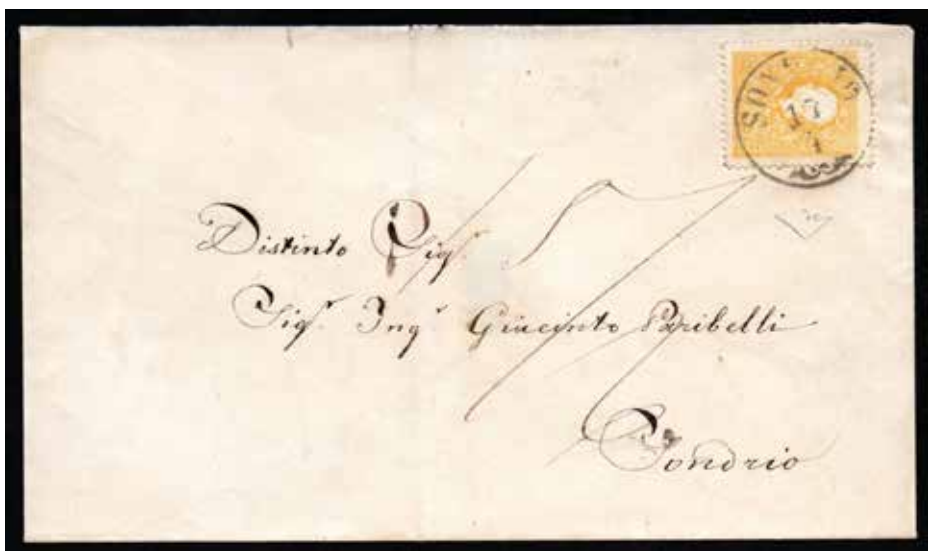 Distinto Sigr.
Sigr. Ingr Giacinto Paribelli
Sondrio